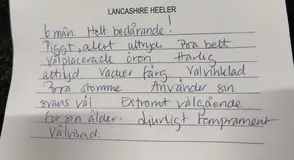 LANCASHIRE HEELER
6 mån Helt bedårande!
Piggt, alert uttryck. Bra bett
Välplacerade öron Härlig
attityd Vacker färg Välvinklad
Bra stomme Använder sin
svans väl Extremt välgående
för sin ålder. Ljuvligt temprament
Välvisad.